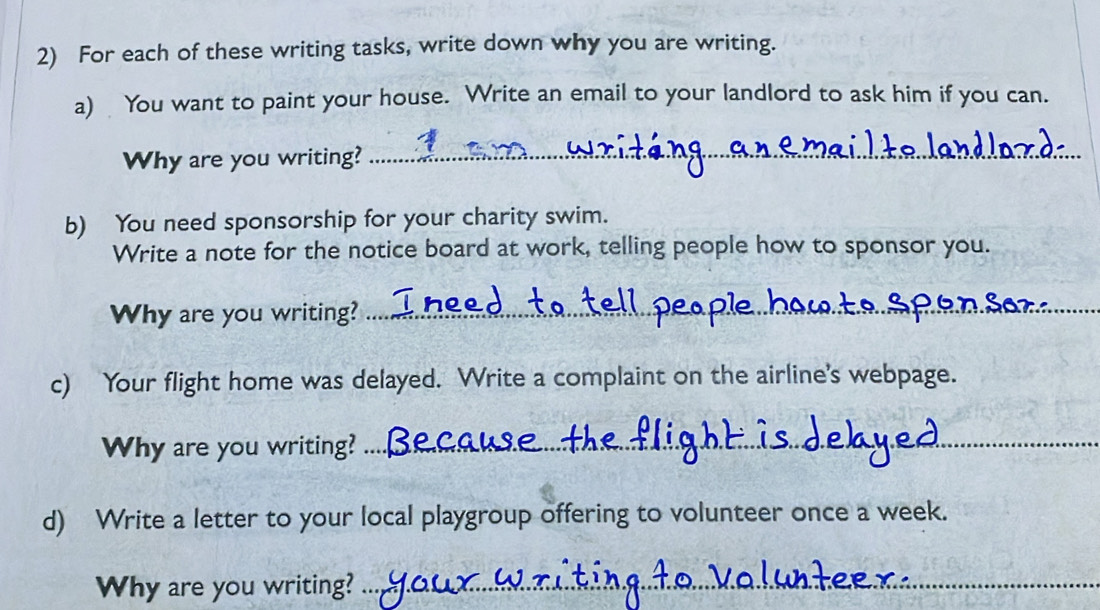 2) For each of these writing tasks, write down why you are writing.
a) You want to paint your house. Write an email to your landlord to ask him if you can.
Why are you writing? I am writing an email to landlord.
b) You need sponsorship for your charity swim.
Write a note for the notice board at work, telling people how to sponsor you.
Why are you writing? I need to tell people how to sponsor.
c) Your flight home was delayed. Write a complaint on the airline's webpage.
Why are you writing? Because the flight is delayed
d) Write a letter to your local playgroup offering to volunteer once a week.
Why are you writing? your writing to volunteer.